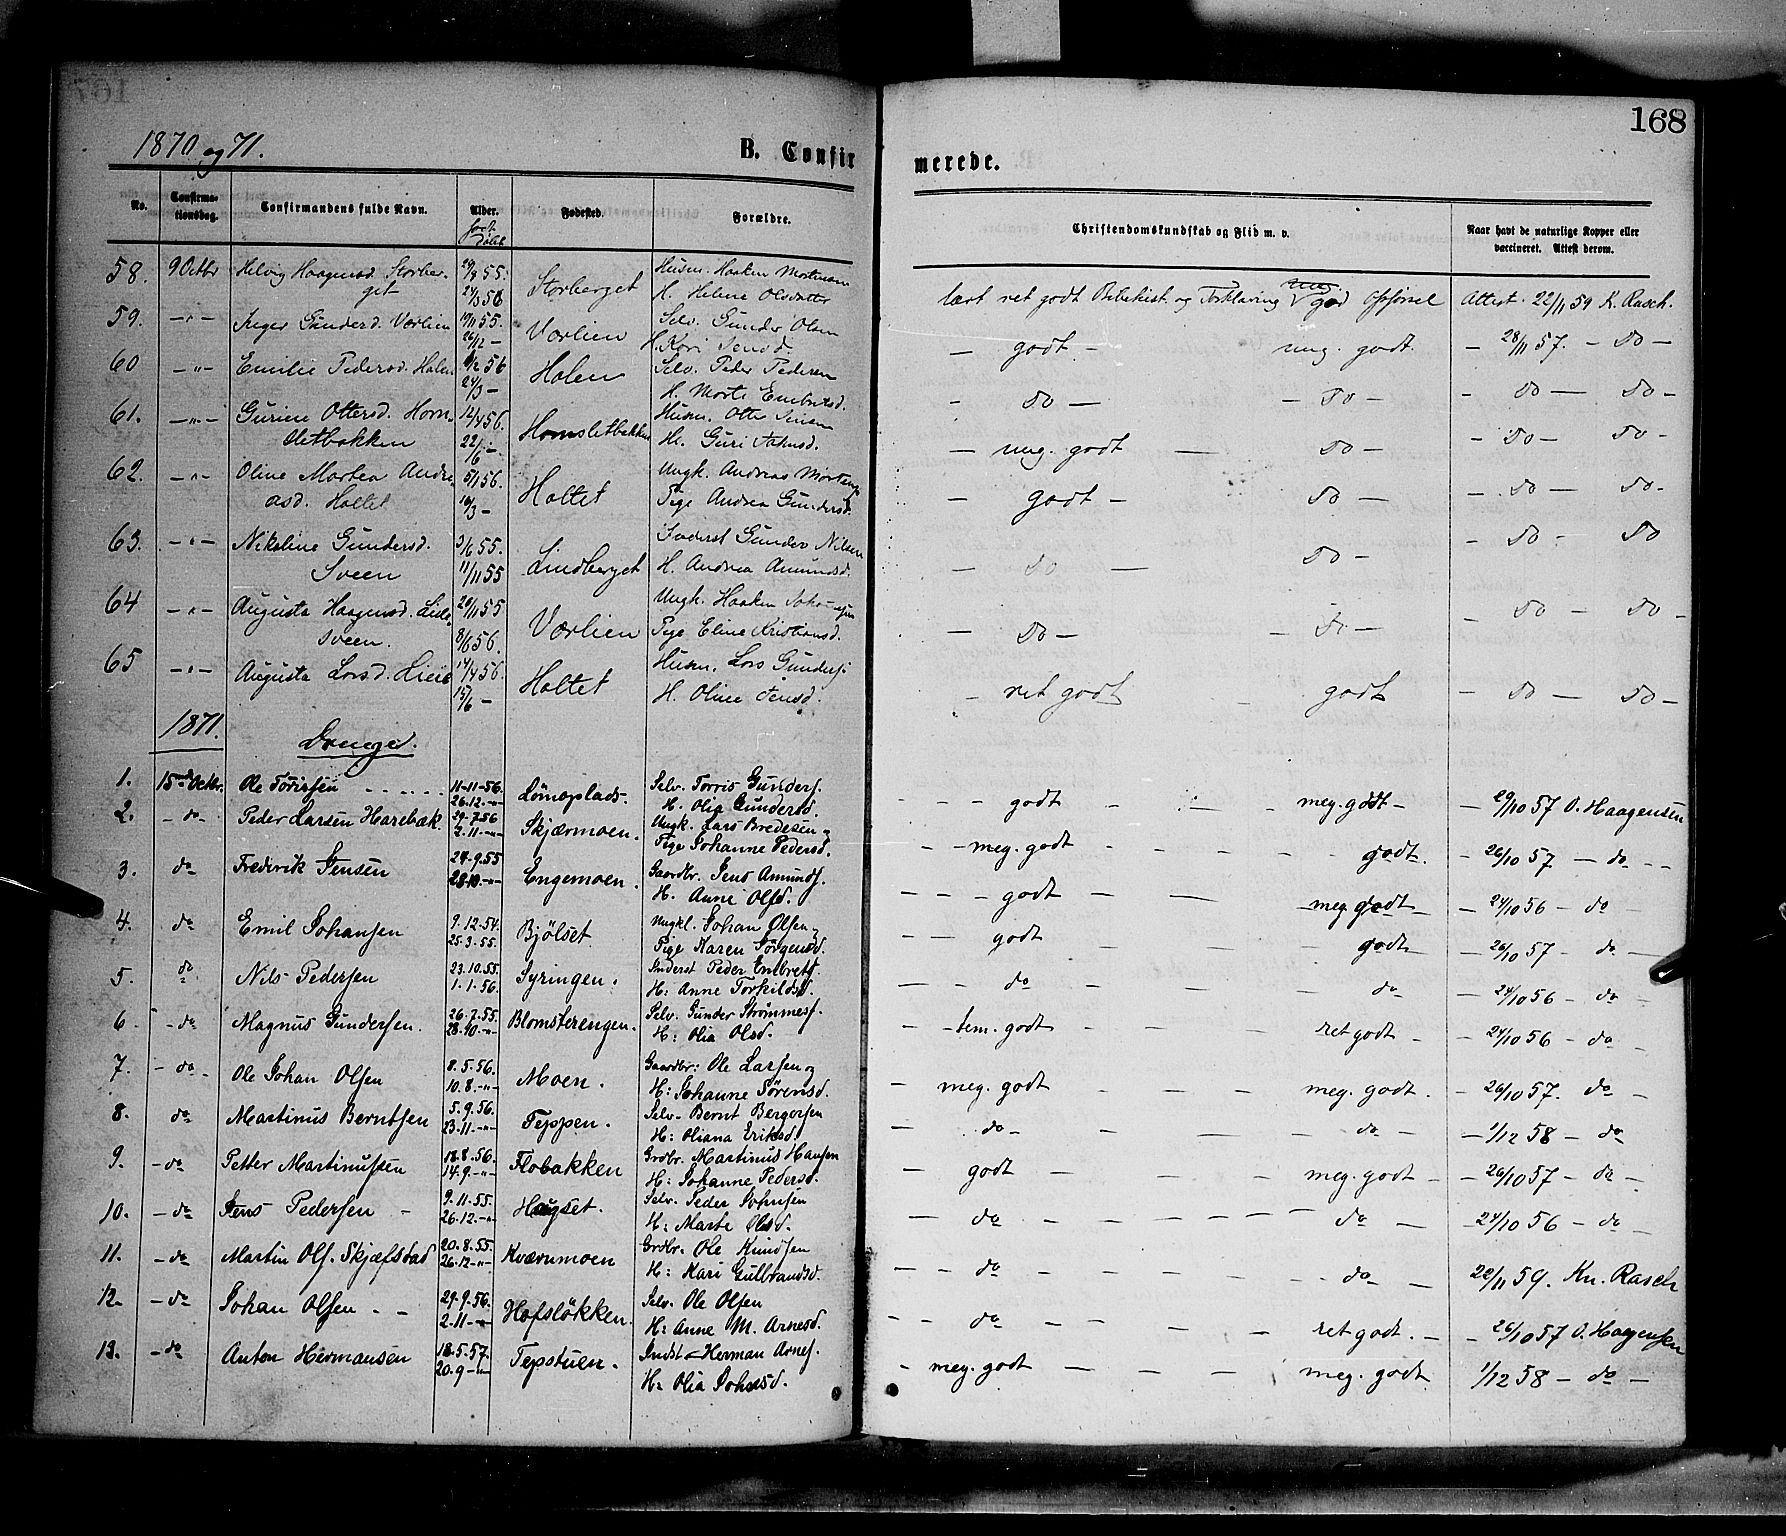 168
1870 og 71.
B. Confirmerede.
No. Confirmationsdag. Confirmandens fulde Navn. Alder. født døbt Fødested. Forældre. Christendomskundskab og Flid m. v. Naar havt de naturlige Kopper eller vaccineret. Attest derom.
58. 9 Octbr Helvig Haagensd. Storber- 29/8 55. Storberget Husm. Haaken Mortensen lært ret godt Bibelhist. og Forklaring meg. god Opførsel Attest. 22/11 59 K. Rasch.
get 24/3 56 H. Helene Olsdatter
59. -"- Inger Gundersd. Vorlien 19/11 55. Vorlien Selv. Gunder Olsen - godt - meg. godt. - 28/11 57. - Do -
26/12 - H. Kari Jensd.
60 -"- Emilie Pedersd. Holen 56 Holen Selv. Peder Pedersen - Do - - Do - - Do - Do -
24/3 - H. Marte Embretsd.
61. -"- Gurine Ottersd. Horn- 12/4 56. Hornsletbakken Husm. Otter Jensen - meg. godt - Do - - Do - Do -
sletbakken 22/6 - H. Guri
62. -"- Oline Martea Andre- 5/1 56. Holtet Ungk. Andreas Mortensen - godt - Do - - Do - Do -
asd. Holtet 16/3 - Pige Andrea Gundersd.
63. -"- Nikoline Gundersd. 3/6 55. Lindberget Inderst Gunder Nilsen - Do - Do - - Do - Do
Sveen 11/11 55 H. Andrea Amundsd.
64 -"- Augusta Haagensd. Lille- 20/11 55 Vorlien Ungk. Haaken Johansen - Do - - Do - - Do - Do -
sveen. 8/6 56. Pige Eline Kristiansd.
65 -"- Augusta Larsd. 14/4 56. Holtet Husm. Lars Gunders. - ret godt - godt - Do - Do -
15/6 - H. Oline Jensd.
1871. Drenge.
1. 15de Octbr. Ole Torissen 11-11-56. Selv. Torris Gunders. - - - godt - - - meg. godt - - 29/10 57 O. Haagensen
26.12.-"- H. Olia Gundersd.
2. - do - Peder Larsen Harebæk. 29.7.56 Skjærmoen. Ungk. Lars Bredesen og - - meg. godt - - - - godt. - 26/10 57 - do - -
2.11.-"- Pige Johanne Pedersd.
3. do Frederik Jensen 24.9.55 Engemoen. Gaardbr. Jens Amunds. - - - godt - - - meg. godt - - 24/10 56 - do -
28.10.-"- H. Anne Olsd.
4. do Emil Johansen 9.12.54. Bjölset. Ungkl. Johan Olsen og - - godt - - - godt - - 26/10 57 - do -
25.3.55. Pige Karen Jörgensd.
5. do Nils Pedersen 23.10.55. Syringen. Inderst Peder Embrets. - - do - - - do - - 24/10 56 - do -
1.1.56. H: Anne Torkildsd.
6. - do Magnus Gundersen. 26.7.55. Blomsterengen. Selv. Gunder Strömmess. - - tem. godt - - - ret godt - - 24/10 56 - do -
28.10.-"- H: Olia Olsd.
7. - do - Ole Johan Olsen 8.5.56. Moen. Gaardbr: Ole Larsen og - meg. godt - - - meg. godt. - 26/10 57. do -
10.8.-"- H: Johanne Sörensd.
8. do Martinus Berntsen 5.9.56. Teppen. Selv. Bernt Bergersen - do - - - do - - 1/12 58 - do
23.11.-"- H: Oliana Eriksd.
9. - do Petter Martinussen 18.8.56. Flobakken Grdbr. Martinus Hansen - godt - - - meg. godt - - 26/10 57 - do -
14.9-"- H: Johanne Pedersd.
10. - do Jens Pedersen - 9.11.55. Haugset. Selv. Peder Johnsen - do - - - - do - - 24/10 56 - do -
26.12.-"- H: Marte Olsd.
11. - do Martin Ols. Skjæfstad 20.8.55. Kværnmoen Grdbr. Ole Knudsen - - do - - - - do - 22/11 59. Kn. Rasch
26.12-"- H: Kari Gulbrandsd.
12. - do Johan Olsen - - 29.9.56. Hofslökken. Selv. Ole Olsen - do - - - ret godt. - - 26/10 57 O. Haagensen
2.11.-"- H: Anne M. Arnesd.
13. - do Anton Hermansen 18.5.57. Tepstuen. Indst - Herman Arnes. - meg. godt - - - meg. godt 1/12 58 - do -
20.9-"- H: Olia Johnsd.